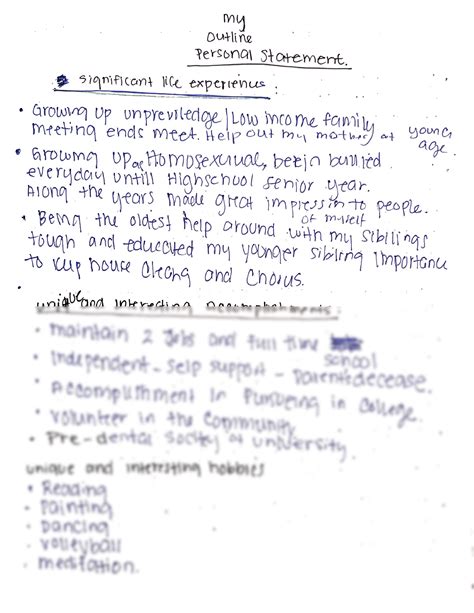 my
outline
Personal Statement.
significant life experiences :
• Growing up unpreviledge/Low income family
meeting ends meet. Help out my mother at young
age.
• Growing up as Homosexual, bein bullied
everyday untill Highschool Senior year.
Along the years made great impression to people.
of myself
• Being the oldest help around with my sibilings
tough and educated my younger sibling importance
to kup house cleang and chorus.
unique and interesting accomplishments:
• maintain 2 Jobs and full time
school
• Independent - Self support - Parent decease.
• Accomplithment in Pursueing in College.
• Volunteer in the Community
• Pre-dental society at university.
unique and interesting hobbies
• Reading
• Painting
• Dancing
• volleyball
• meditation.